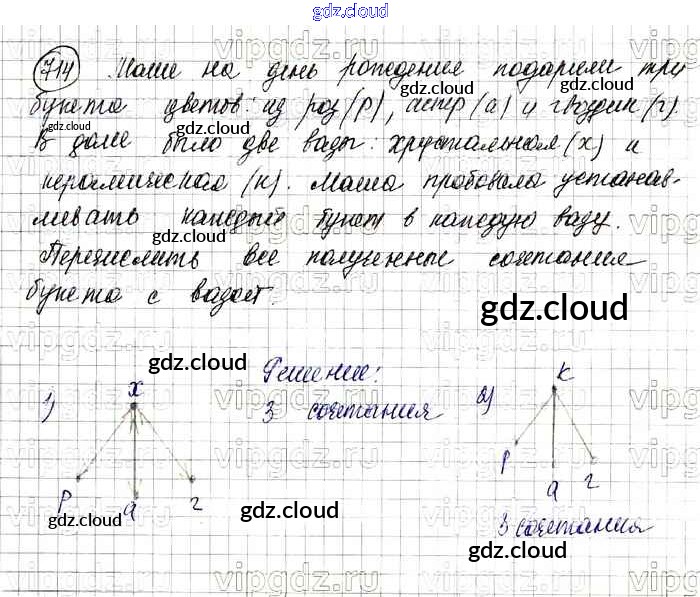 gdz.cloud
714 Маше на день рождения подарили три
букета цветов: из роз (р), астр (а) и гвоздик (г).
В доме было две вазы: хрустальная (х) и
керамическая (к). Маша пробовала устанав-
ливать каждый букет в каждую вазу.
Перечислить все полученные сочетания
букета с вазой.
gdz.cloud
Решение:
1) х
р а г
3 сочетания
2) к
р а г
3 сочетания
gdz.cloud